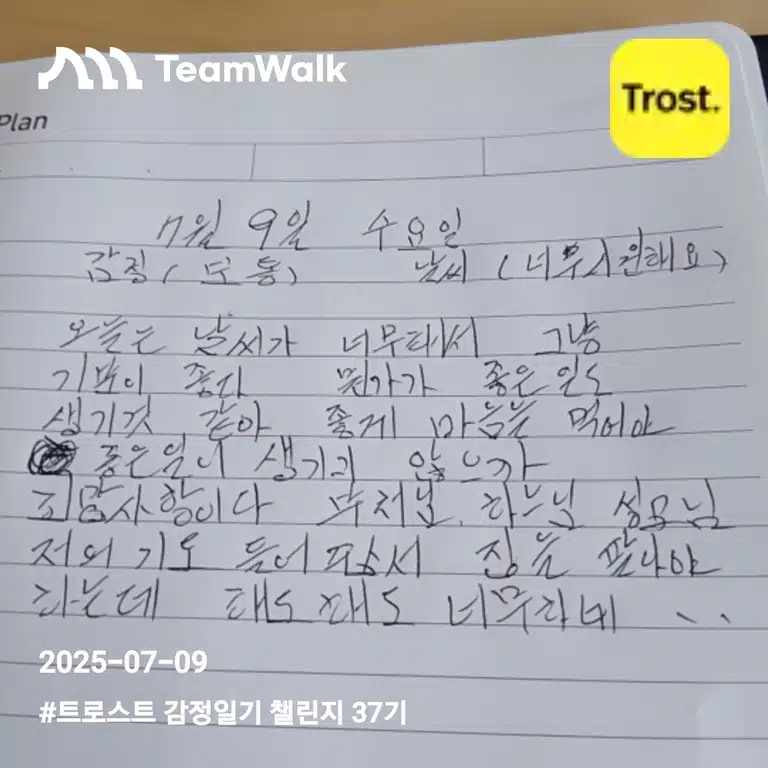 TeamWalk
Trost.
Plan
7월 9일 수요일
감정 (보통) 날씨 (너무시원해요)
오늘은 날씨가 너무 그냥
기분이 좋다 뭔가가 좋은일도
생기것 같아 좋게 마음을 먹어야
좋은일이 생기지 않으까
희망사항이다 부처님 하느님 성모님
저의 기도 들어 을 팔나야
하는데 너무하네 ..
2025-07-09
#트로스트 감정일기 챌린지 37기